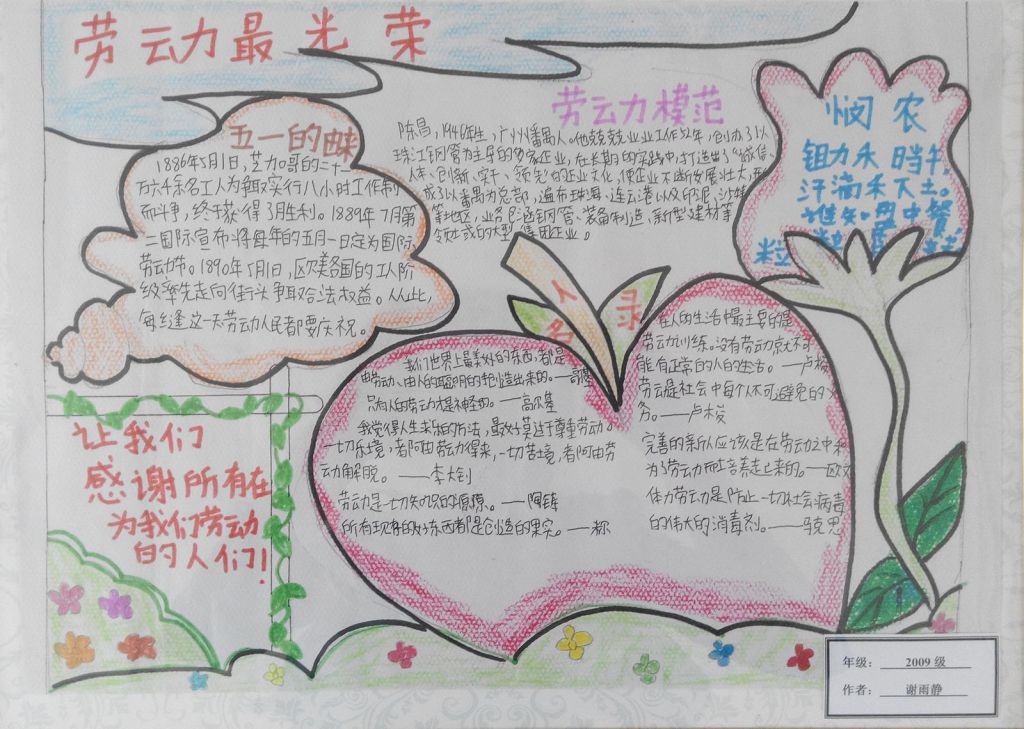 劳动力最光荣
五一的由来
1886年5月1日，芝加哥的二十一
万六千余名工人为争取实行八小时工作制
而斗争，终于获得了胜利。1889年7月第
二国际宣布将每年的五月一日定为国际
劳动节。1890年5月1日，欧美各国的工人阶
级率先走向街头争取合法权益。从此，
每逢这一天劳动人民都要庆祝。
劳动力模范
陈昌，1940年生，广州番禺人。他兢兢业业工作
珠江钢管为主导的
在长期的实践中，打造出了"诚信、
创新、实干、领先"的企业文化，使企业不断发展壮大，形
成了以番禺为总部，遍布珠海、连云港以及印尼、沙特
等地区，业务包涵钢管、装备制造、新型建材等
领域的大型集团企业。
悯农
锄力禾日当午，
汗滴禾下土。
谁知盘中餐
粒
名人
录
我们世界上最美好的东西，都是
由劳动、由人的聪明的手创造出来的。——高尔基
只有人的劳动才是神圣的。——高尔基
我觉得人生求乐的方法，最好莫过于尊重劳动。
一切乐境，都由劳动得来，一切苦境，都由劳
动力解脱。——李大钊
劳动是一切知识的源泉。——陶铸
所有现存的好东西都是创造的果实。——穆
在人的生活中最主要的是
劳动训练。没有劳动就不可
能有正常的人的生活。——卢梭
劳动是社会中每个人不可避免的义
务。——卢梭
完善的新人应该是在劳动之中和
为了劳动而培养起来的。——欧文
体力劳动是防止一切社会病毒
的伟大的消毒剂。——马克思
让我们
感谢所有在
为我们劳动
的人们！
年级：2009级
作者：谢雨静